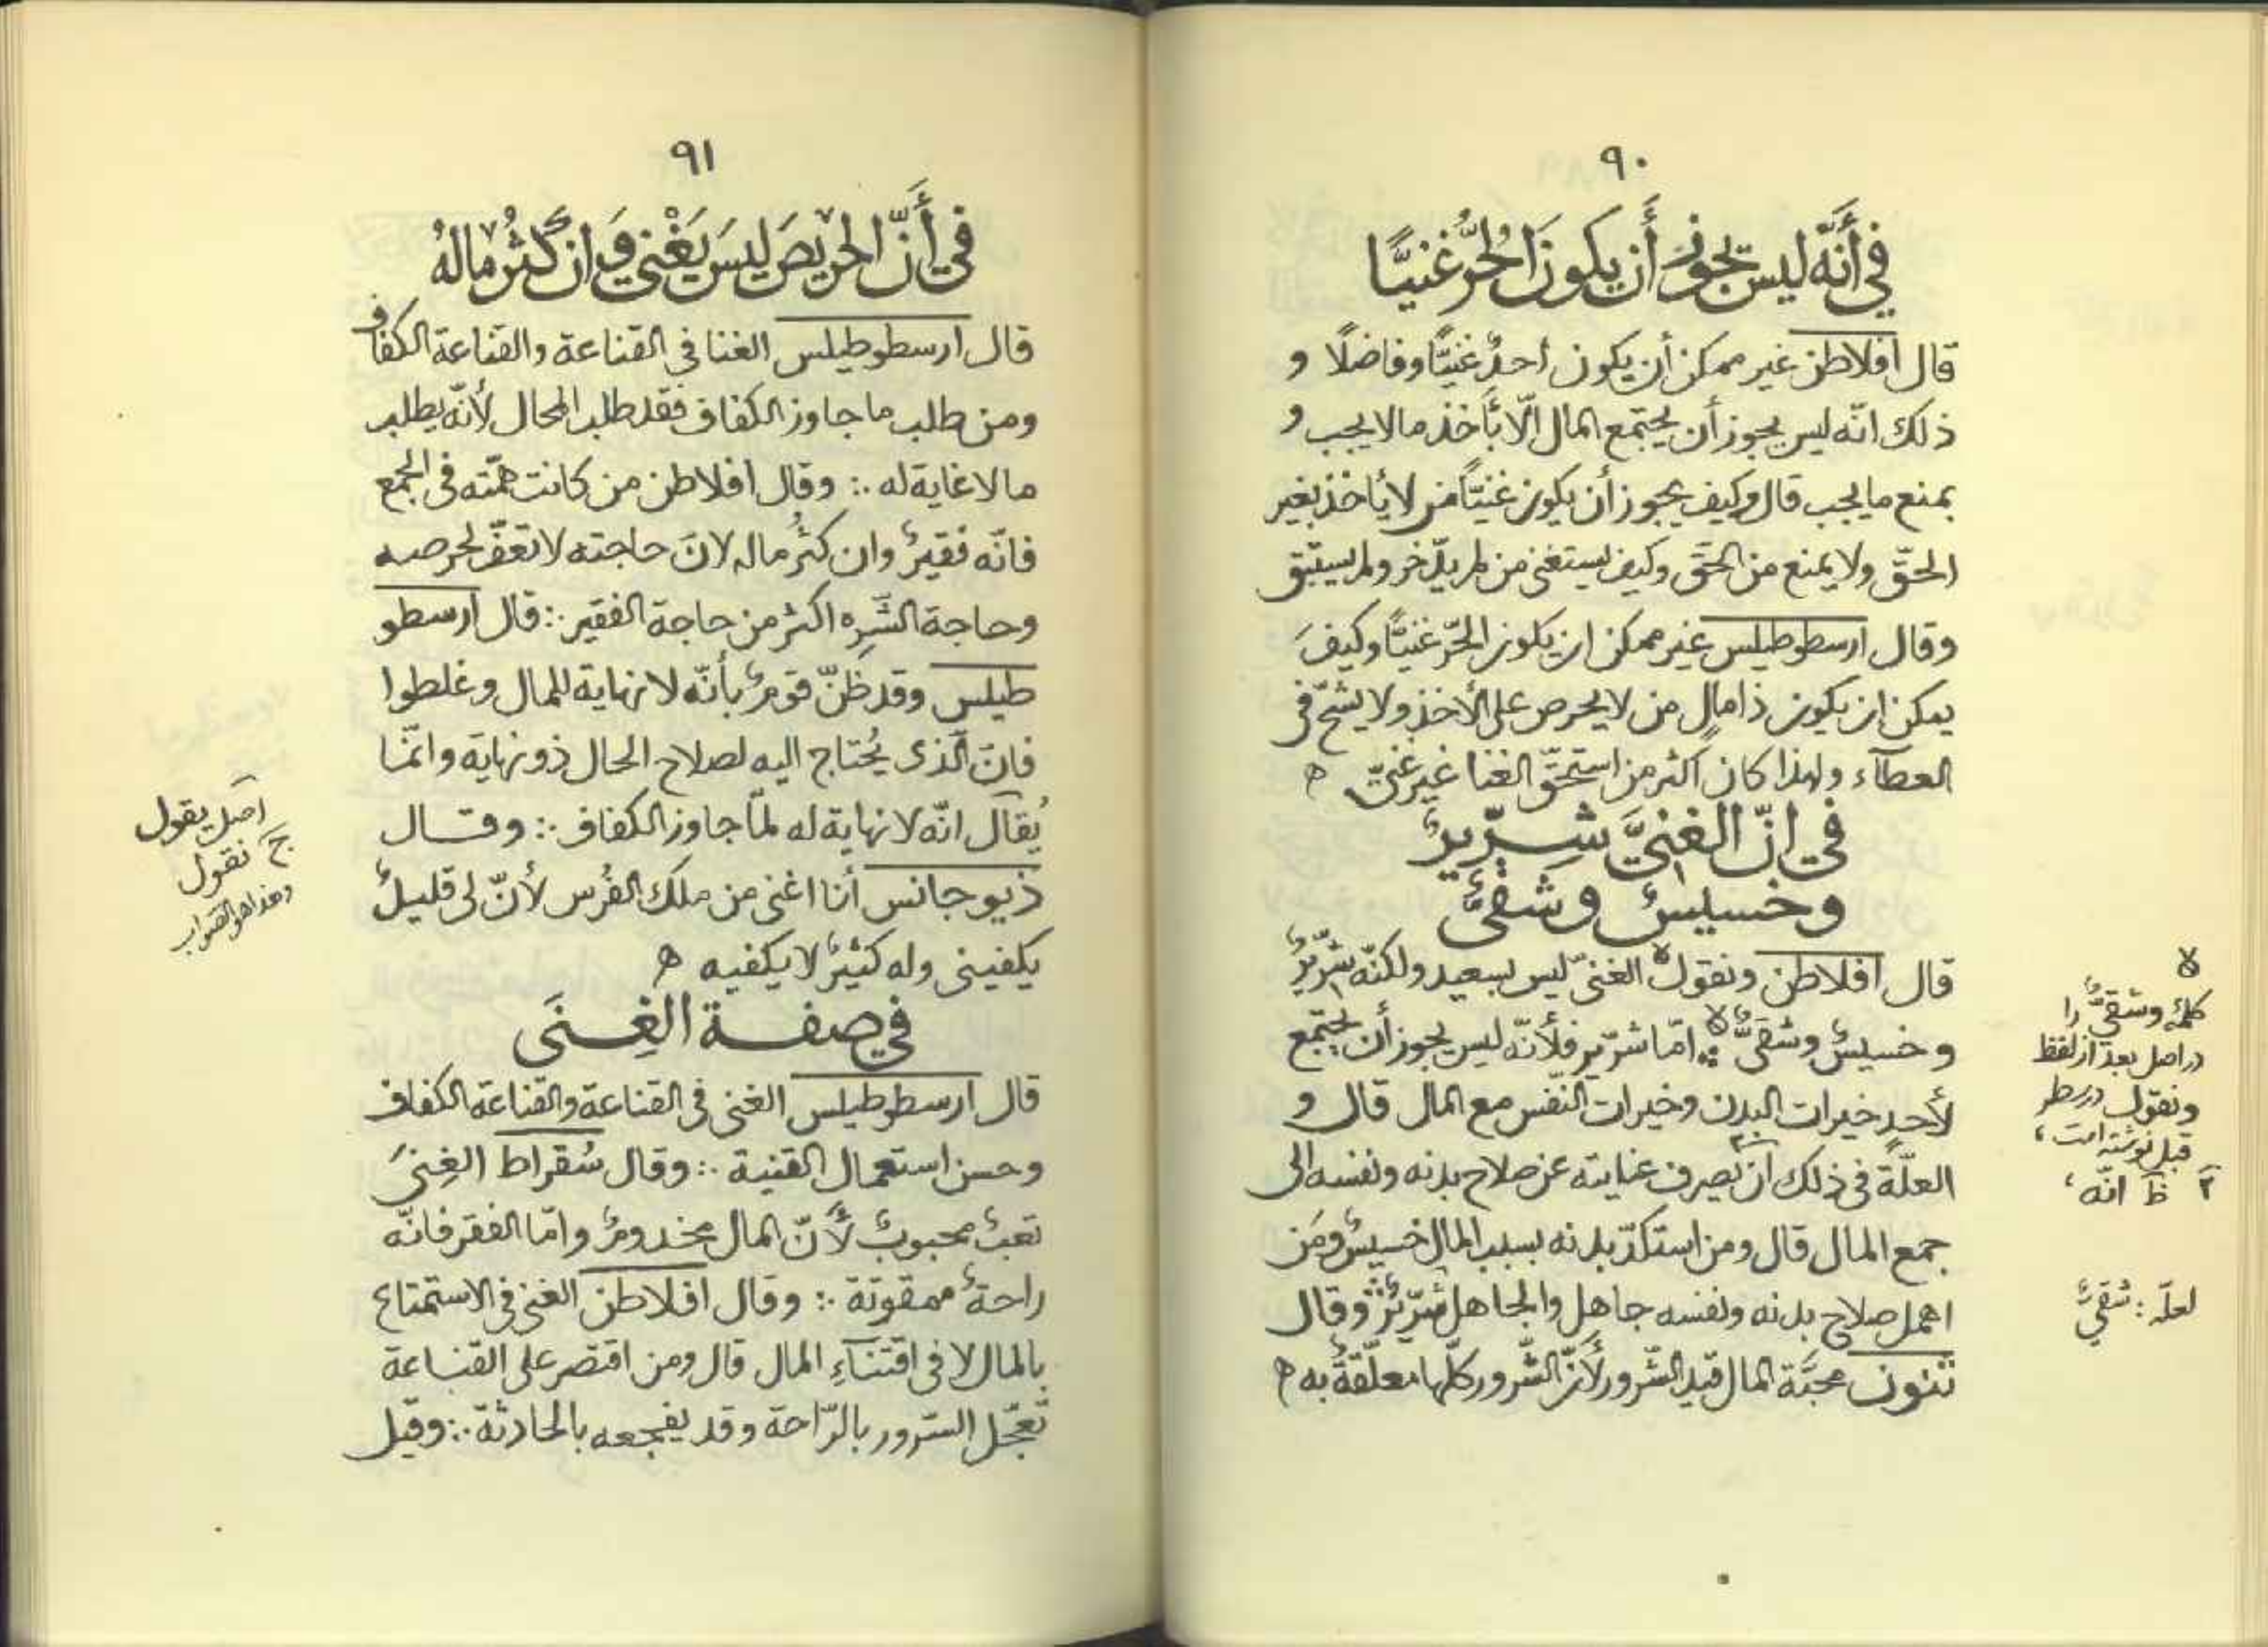 ٩٠
في أَنَّه ليس يجوز أَن يكونَ الحُرُّ غنيًّا
قال افلاطن غير ممكن أن يكون أحدٌ غنيًّا وفاضلًا و
ذلك انّه ليس يجوز أن يجتمع المال الّا بأخذ مالا يجب و
بمنع ما يجب قال وكيف يجوز أن يكون غنيًّا من لا يأخذ بغير
الحقّ ولا يمنع من الحقّ وكيف يستغنى من لم يدّخر ولم يستبق
وقال ارسطوطيلس غير ممكن ان يكون الحرّ غنيًّا وكيفَ
يمكن ان يكون ذا مالٍ من لا يحرص على الأخذ ولا يشحّ فى
العطآء ولهذا كان اكثر من استحقّ الغنا غير غنىّ ه
في انّ الغنيَّ شِرّيرٌ
وخسيسٌ وشقىٌّ
قال افلاطن ونقول لا الغنىّ ليس بسعيد ولكنّه شرّيرٌ
وخسيسٌ وشقىٌّ لا امّا شرّير فلأنّه ليس يجوز أن يجتمع
لأحدٍ خيرات البدن وخيرات النفس مع المال قال و
العلّة فى ذلك ان ٢ يصرف عنايته عن صلاح بدنه ونفسه الى
جمع المال قال ومن استكدّ بدنه بسبب المال خسيسٌ ومَن
اهمل صلاح بدنه ونفسه جاهل والجاهل شرّيرٌ وقال
ثنون محبّة المال قيد الشّرور لأنّ الشّرور كلّها معلّقةٌ به ه
لا
كلمه وشقىٌّ را
در اصل بعد از لفظ
ونقول در سطر
قبل نوشته است ،
٢ ظ انّه ،
لعلّه : شقىّ
٩١
في أَنّ الحريصَ ليسَ يَغْني وَان كثُر مالهُ
قال ارسطوطيلس الغنا فى القناعة والقناعة الكفاف
ومن طلب ما جاوز الكفاف فقد طلب المحال لأنّه يطلب
ما لا غاية له ∴ وقال افلاطن من كانت همّته فى الجمع
فانّه فقيرٌ وان كثُر ماله لانّ حاجته لا تعفّ لحرصه
وحاجة الشّرِه اكثر من حاجة الفقير ∴ قال ارسطو
طيلس وقد ظنّ قومٌ بأنّه لا نهاية للمال وغلطوا
فانّ الّذى يُحتاج اليه لصلاح الحال ذو نهاية وانّما
يُقال انّه لا نهاية له لمّا جاوز الكفاف ∴ وقال
ذيوجانس أنا اغنى من ملك الفُرس لأنّ لى قليلٌ
يكفينى وله كثيرٌ لا يكفيه ه
في صفة الغِنَى
قال ارسطوطيلس الغنى فى القناعة والقناعة الكفاف
وحسن استعمال القنية ∴ وقال سُقراط الغِنىَ
تعبٌ محبوبٌ لأنّ المال مخدومٌ وامّا الفقر فانّه
راحةٌ ممقوتة ∴ وقال افلاطن الغنى فى الاستمتاع
بالمال لا فى اقتنآءِ المال قال ومن اقتصر على القناعة
تعجّل السّرور بالرّاحة وقد يفجعه بالحادثة ∴ وقيل
اصل يقول
ج نقول
وهذا هو الصّواب